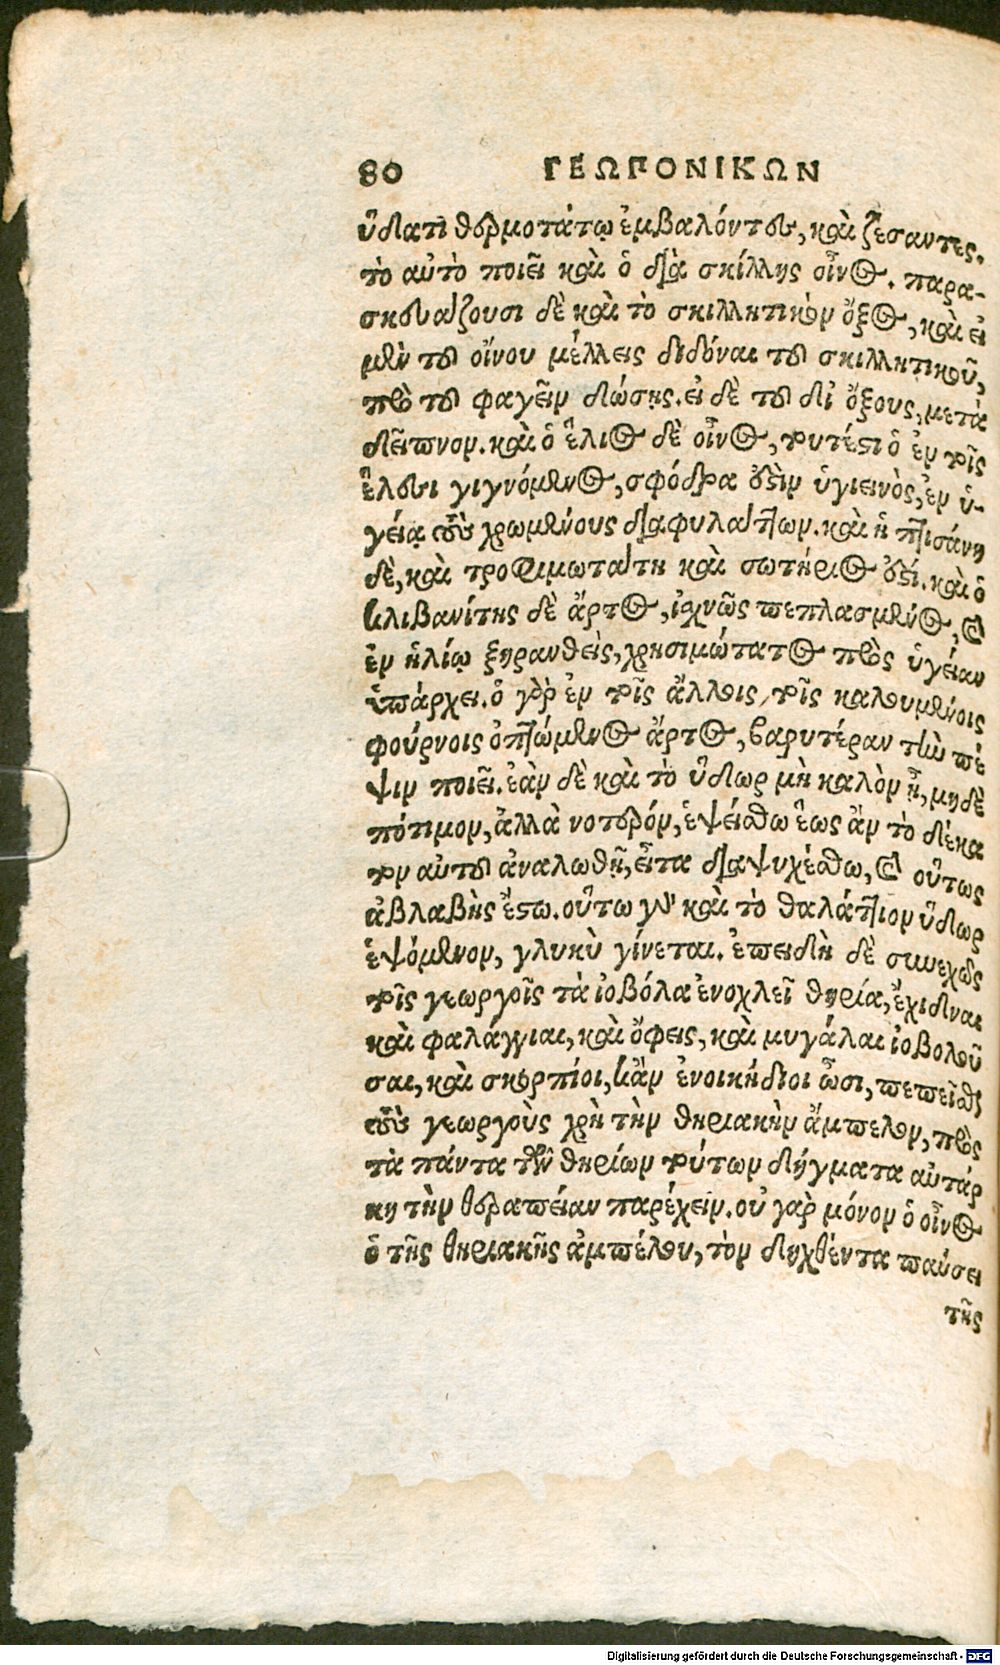 80 ΓΕΩΠΟΝΙΚΩΝ
ὕδατι θερμοτάτῳ ἐμβαλόντες, καὶ ζέσαντες.
τὸ αὐτὸ ποιεῖ καὶ ὁ διὰ σκίλλης οἶνος. παρα-
σκευάζουσι δὲ καὶ τὸ σκιλλητικὸν ὄξος, καὶ εἰ
μὲν τοῦ οἴνου μέλλεις διδόναι τοῦ σκιλλητικοῦ,
πρὸ τοῦ φαγεῖν δώσῃς. εἰ δὲ τοῦ δι' ὄξους, μετὰ
δεῖπνον. καὶ ὁ ἕλιος δὲ οἶνος, τουτέστι ὁ ἐν τοῖς
ἕλεσι γιγνόμενος, σφόδρα ἐστὶν ὑγιεινὸς, ἐν ὑ-
γείᾳ τοὺς χρωμένους διαφυλάττων. καὶ ἡ πτισάνη
δὲ, καὶ τροφιμωτάτη καὶ σωτήριος ἐστί. καὶ ὁ
κλιβανίτης δὲ ἄρτος, ἰχνῶς πεπλασμένος, καὶ
ἐν ἡλίῳ ξηρανθεὶς, χρησιμώτατος πρὸς ὑγείαν
ὑπάρχει. ὁ γὰρ ἐν τοῖς ἄλλοις, τοῖς καλουμένοις
φούρνοις ὀπτώμενος ἄρτος, βαρυτέραν τὴν πέ
ψιν ποιεῖ. ἐὰν δὲ καὶ τὸ ὕδωρ μὴ καλὸν ᾖ, μηδὲ
πότιμον, ἀλλὰ νοτερόν, ἑψείσθω ἕως ἂν τὸ δέκα
τον αὐτοῦ ἀναλωθῇ, εἶτα διαψυχέσθω, καὶ οὕτως
ἀβλαβὴς ἔστω. οὕτω γοῦν καὶ τὸ θαλάττιον ὕδωρ
ἑψόμενον, γλυκὺ γίνεται. ἐπειδὴ δὲ συνεχῶς
τοῖς γεωργοῖς τὰ ἰοβόλα ἐνοχλεῖ θηρία, ἔχιδναι
καὶ φαλάγγιαι, καὶ ὄφεις, καὶ μυγάλαι ἰοβολοῦ
σαι, καὶ σκορπίοι, κἂν ἐνοικήδιοι ὦσι, πεπεῖσθαι
τοὺς γεωργοὺς χρὴ τὴν θηριακὴν ἄμπελον, πρὸς
τὰ πάντα τῶν θηρίων τούτων δήγματα αὐτάρ
κη τὴν θεραπείαν παρέχειν. οὐ γὰρ μόνον ὁ οἶνος
ὁ τῆς θηριακῆς ἀμπέλου, τὸν δηχθέντα παύσει
τῆς
Digitalisierung gefördert durch die Deutsche Forschungsgemeinschaft - DFG